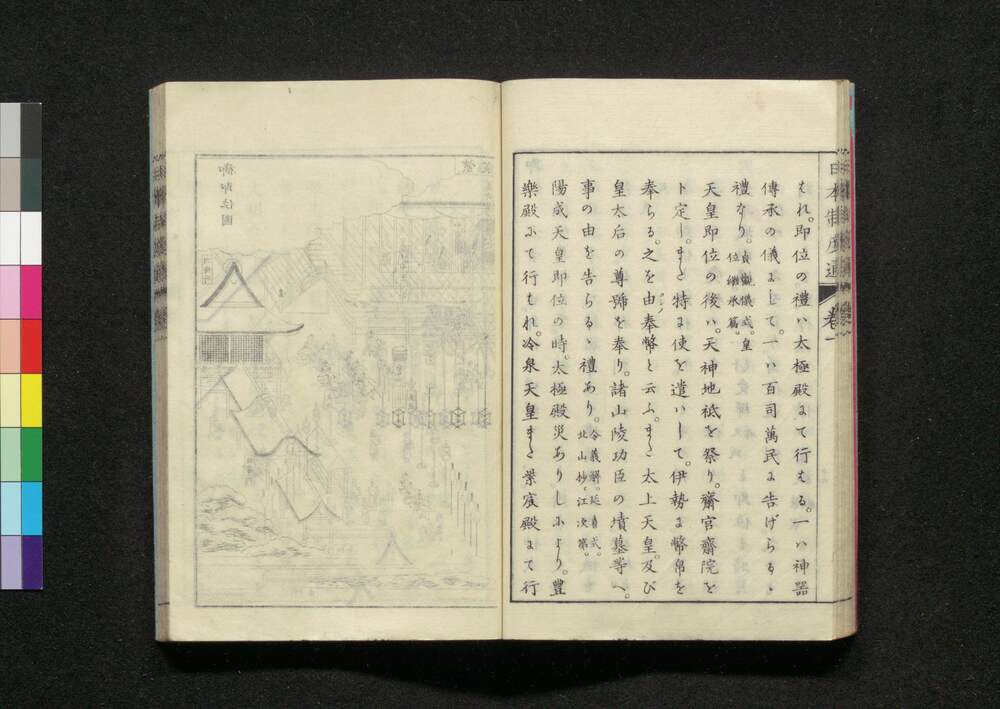 日本制度通 卷一
はれ。即位の禮ハ太極殿にて行はる。一ハ神器
傳承の儀にして。一ハ百司萬民に告げらるゝ
禮なり。貞觀儀式。皇位繼承篇。
天皇即位の後ハ。天神地祇を祭り。齋宮齋院を
卜定し。また特に使を遣ハして。伊勢に幣帛を
奉らる。之を由奉幣と云ふ。また太上天皇。及び
皇太后の尊號を奉り。諸山陵功臣の墳墓等へ。
事の由を告らるゝ禮あり。令義解。延喜式。北山抄。江次第。
陽成天皇即位の時。太極殿災ありしにより。豐
樂殿にて行はれ。冷泉天皇また紫宸殿にて行
御即位圖